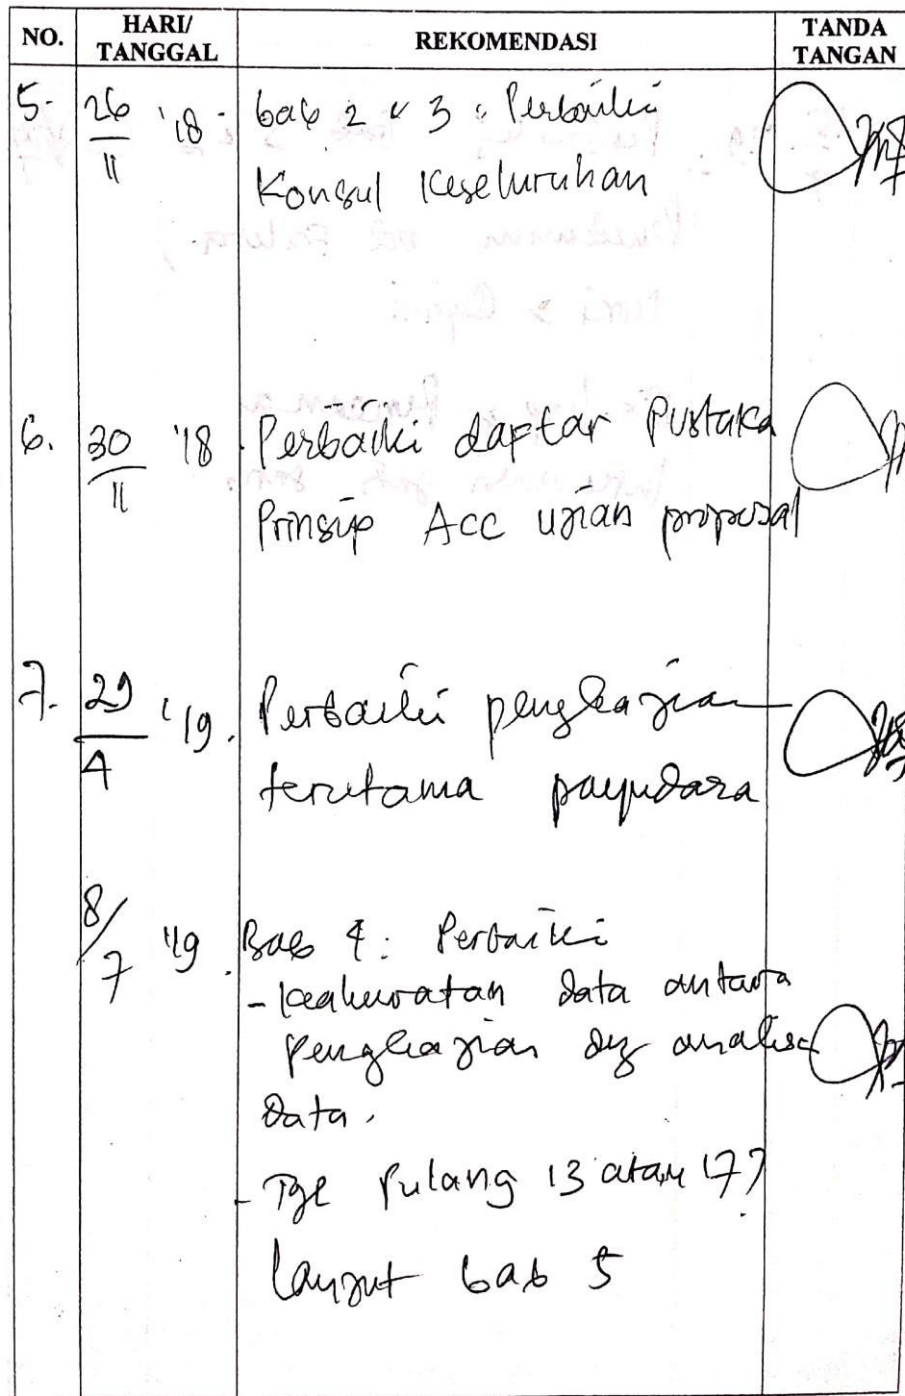 NO. HARI/ TANGGAL REKOMENDASI TANDA TANGAN
5. 26/11 '18 bab 2 & 3 : Perbaiki
Konsul Keseluruhan
6. 30/11 '18 Perbaiki daftar Pustaka
Prinsip Acc ujian proposal
7. 29/4 '19. Perbaiki pengkajian
terutama payudara
8/7 '19. Bab 4 : Perbaiki
- keakuratan data antara
pengkajian dg analisa
data.
- Tgl Pulang 13 atau 17?
Lanjut bab 5